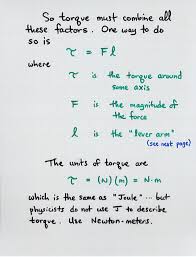 So torque must combine all
these factors. One way to do
so is
τ = Fl
where
τ is the torque around
some axis
F is the magnitude of
the force
l is the "lever arm"
(see next page)
The units of torque are
τ = (N)(m) = N·m
which is the same as "Joule" ... but
physicists do not use J to describe
torque. Use Newton-meters.